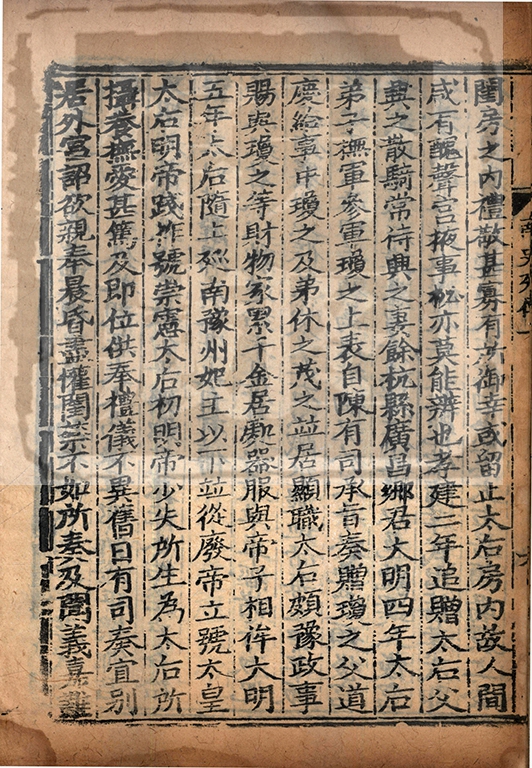 閨房之内禮敬甚寡有所御幸或留止太后房内故人間
咸有醜聲宫掖事秘亦莫能辨也孝建二年追贈太后父
興之散騎常侍興之妻餘杭縣廣昌鄉君大明四年太后
弟子撫軍參軍瓊之上表自陳有司承旨奏贈瓊之父道
慶給事中瓊之及弟休之茂之並居顯職太后頗豫政事
賜與瓊之等財物家累千金居處器服與帝子相侔大明
五年太后隨上巡南豫州妃主以下並從廢帝立號太皇
太后明帝踐祚號崇憲太后初明帝少失所生為太后所
攝養撫愛甚篤及即位供奉禮儀不異舊日有司奏宜别
居外宫詔欲親奉晨昏盡懽閨禁不如所奏及聞義嘉難